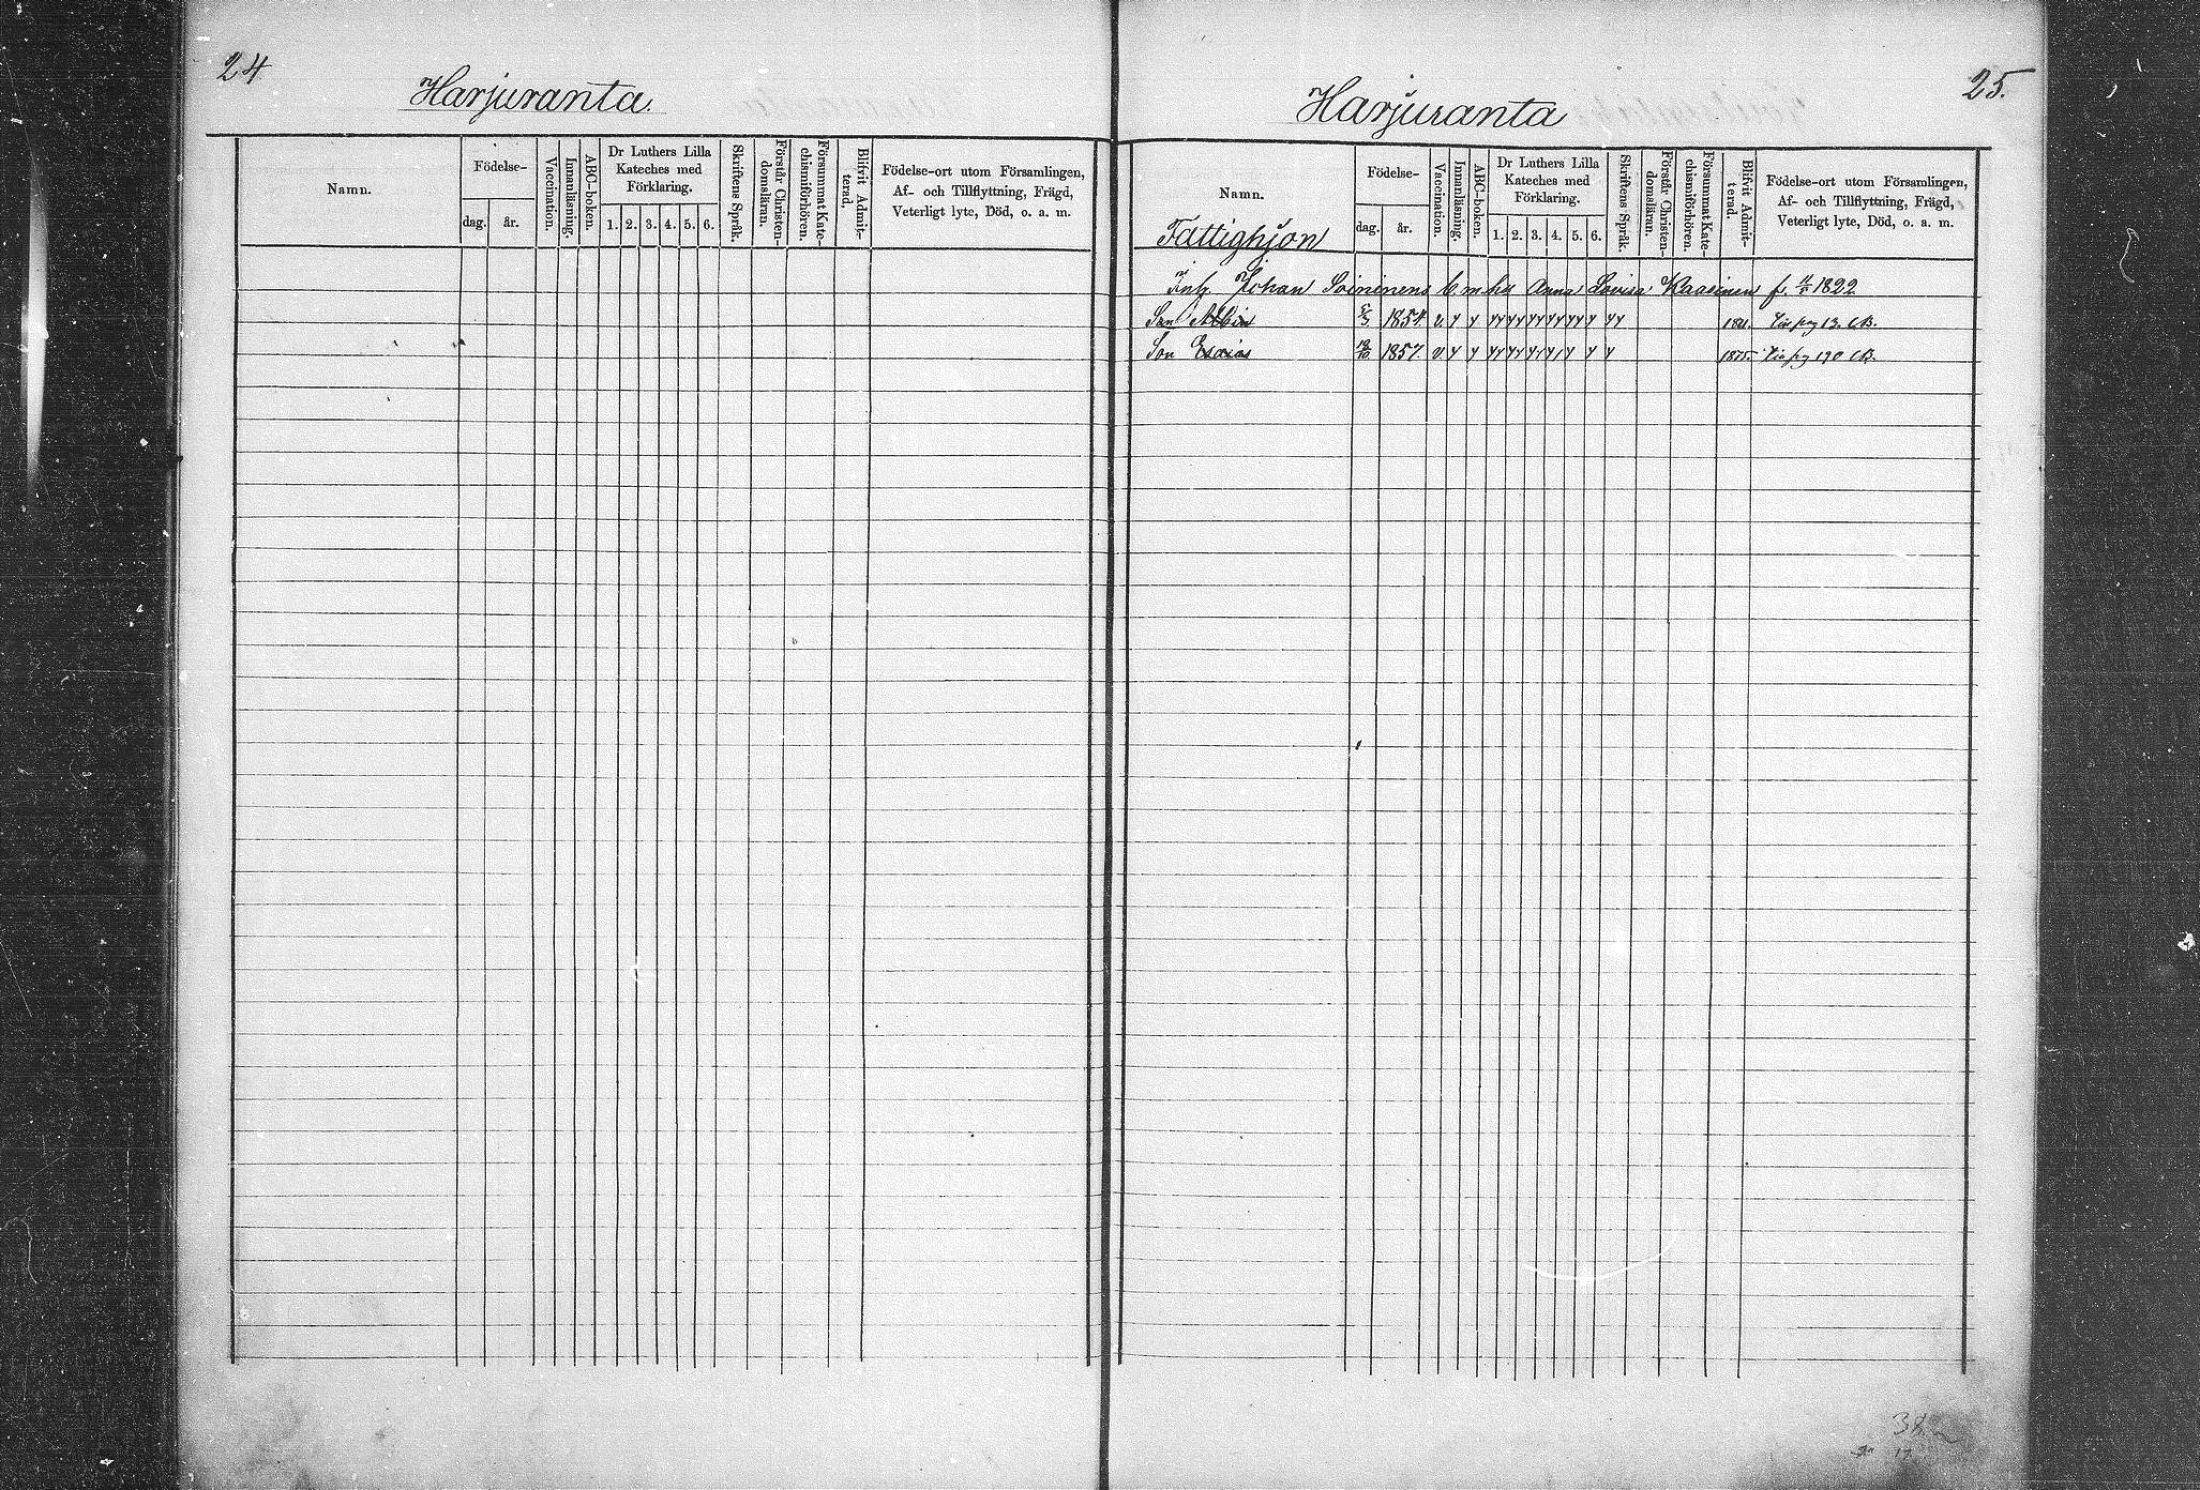 24
Harjuranta.
Namn.
Födelse-
dag.
år.
Vaccination.
Innanläsning.
ABC-boken.
Dr Luthers Lilla
Kateches med
Förklaring.
1. 2. 3. 4. 5. 6.
Skriftens Språk.
Förstår Christen-
domsläran.
Försummat Kate-
chismiförhören.
Blifvit Admit-
terad.
Födelse-ort utom Församlingen,
Af- och Tillflyttning, Frägd,
Veterligt lyte, Död, o. a. m.
25.
Harjuranta
Namn.
Fattighjon
Födelse-
dag.
år.
Vaccination.
Innanläsning.
ABC-boken.
Dr Luthers Lilla
Kateches med
Förklaring.
1. 2. 3. 4. 5. 6.
Skriftens Språk.
Förstår Christen-
domsläran.
Försummat Kate-
chismiförhören.
Blifvit Admit-
terad.
Födelse-ort utom Församlingen,
Af- och Tillflyttning, Frägd,
Veterligt lyte, Död, o. a. m.
Inh. Johan Soininens Anna Lovisa Kaasinen f. 1822
Son Albin 1854. v. y y 1881. pag 13.
Son Esaias 1857. v. y y 1875. pag 190